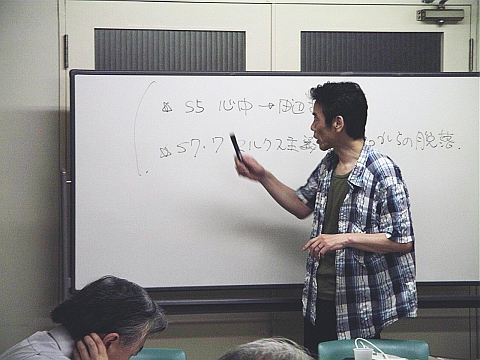 ☆ S5 心中→田辺
☆ S7.7 マルクス主義 からの脱落.